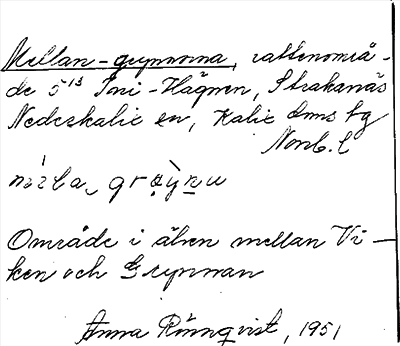 Mellan-grynnorna, vattenområ-
de 5¹³ Tori-Hägnen, Strakanäs
Nederkalix en, Kalix dms tg
Norrb. l
Område i älven mellan Vi-
ken och Grynnan
Anna Rönnqvist, 1951